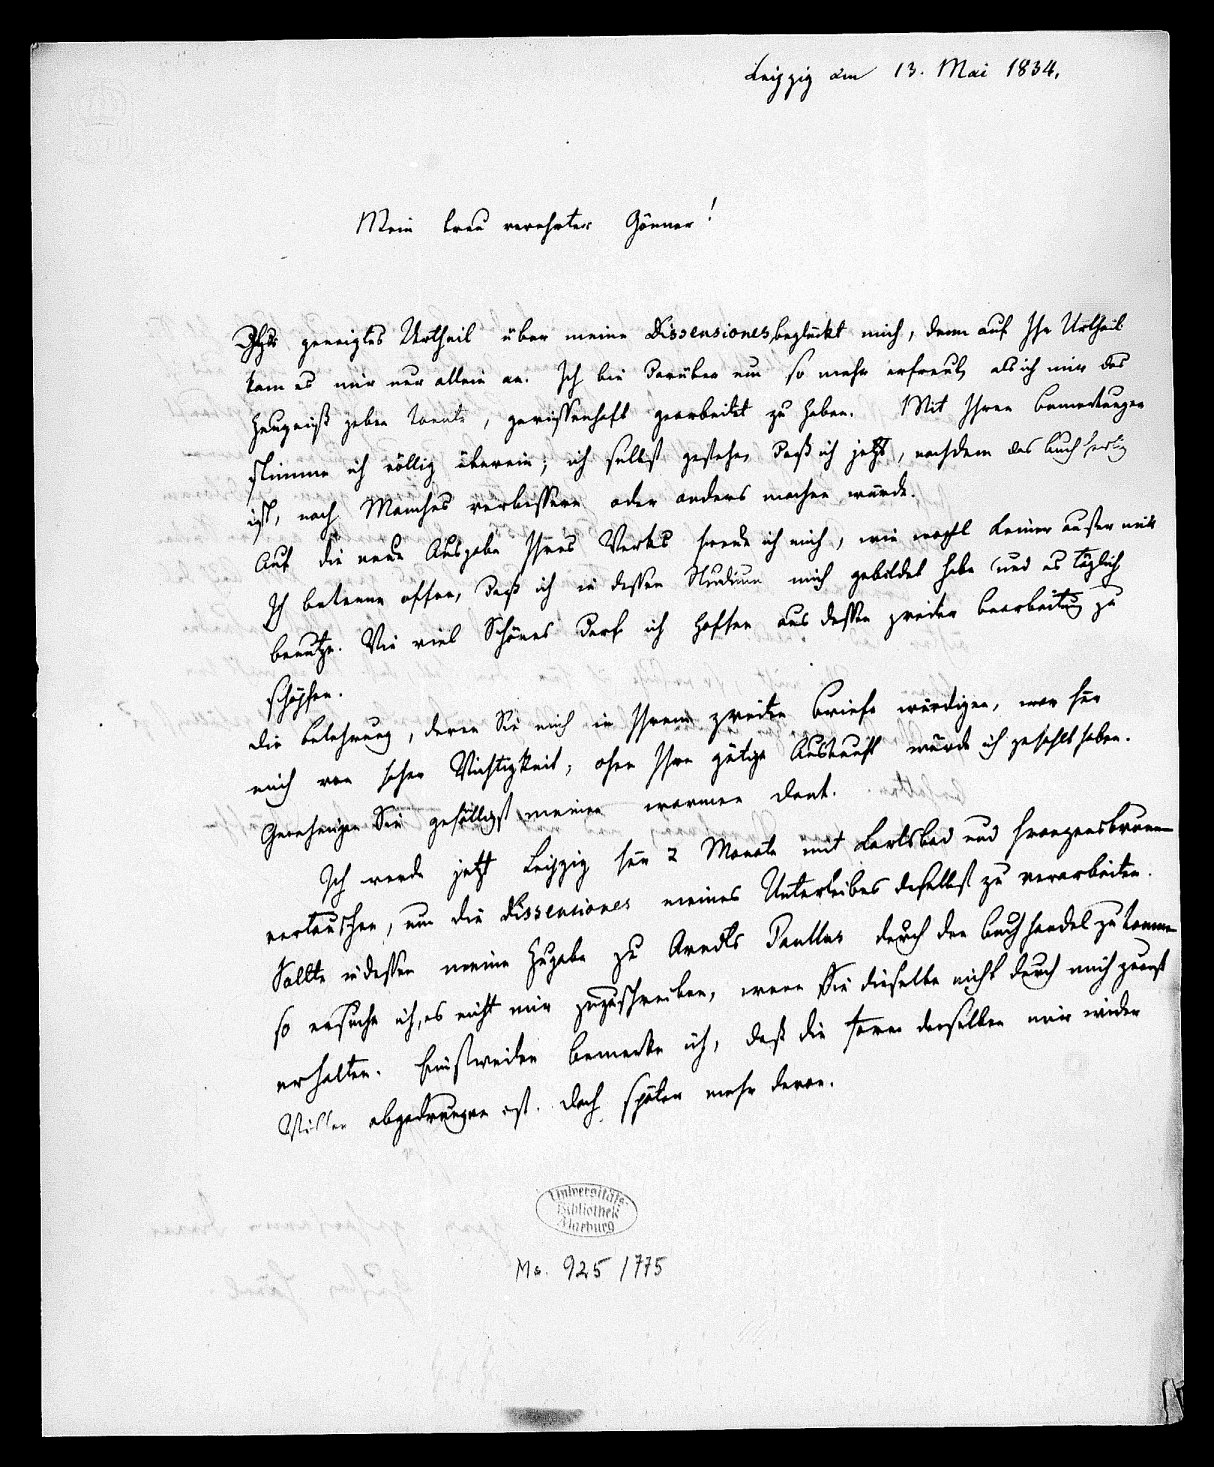 Leipzig am 13. Mai 1834.
Mein treu verehrter Gönner!
Ihr geneigtes Urtheil über meine Dissensiones beglückt mich, denn auf Ihr Urtheil
kam es mir nur allein an. Ich bin darüber um so mehr erfreut, als ich mir das
Zeugniß geben konnte, gewissenhaft gearbeitet zu haben. Mit Ihren Bemerkungen
stimme ich völlig überein; ich selbst gestehe, daß ich jetzt, nachdem das Buch fertig
ist, noch Manches verbessern oder anders machen würde.
Auf die neue Ausgabe Ihres Werks freue ich mich, wie wohl keiner außer mir.
Ich bekenne offen, daß ich in dessen Studium mich gebildet habe und es täglich
benutze. Wie viel Schönes darf ich hoffen aus dessen zweiter Bearbeitung zu
schöpfen.
Die Belehrung, deren Sie mich in Ihrem zweiten Briefe würdigen, war für
mich von hoher Wichtigkeit; ohne Ihre gütige Auskunft würde ich gefehlt haben.
Genehmigen Sie gefälligst meinen warmen Dank.
Ich werde jetzt Leipzig für 2 Monate mit Carlsbad und Franzensbrunn
vertauschen, um die Dissensiones meines Unterleibes daselbst zu verarbeiten.
Sollte indessen meine Zugabe zu Arndts Paullus durch den Buchhandel zu kommen
so ersuche ich, es nicht mir zuzuschreiben, wenn Sie dieselbe nicht durch mich zuerst
erhalten. Einstweilen bemerke ich, daß die Form derselben mir wider
Willen abgedrungen ist. Doch später mehr davon.
Universitäts-
Bibliothek
Marburg
Ms. 925/775